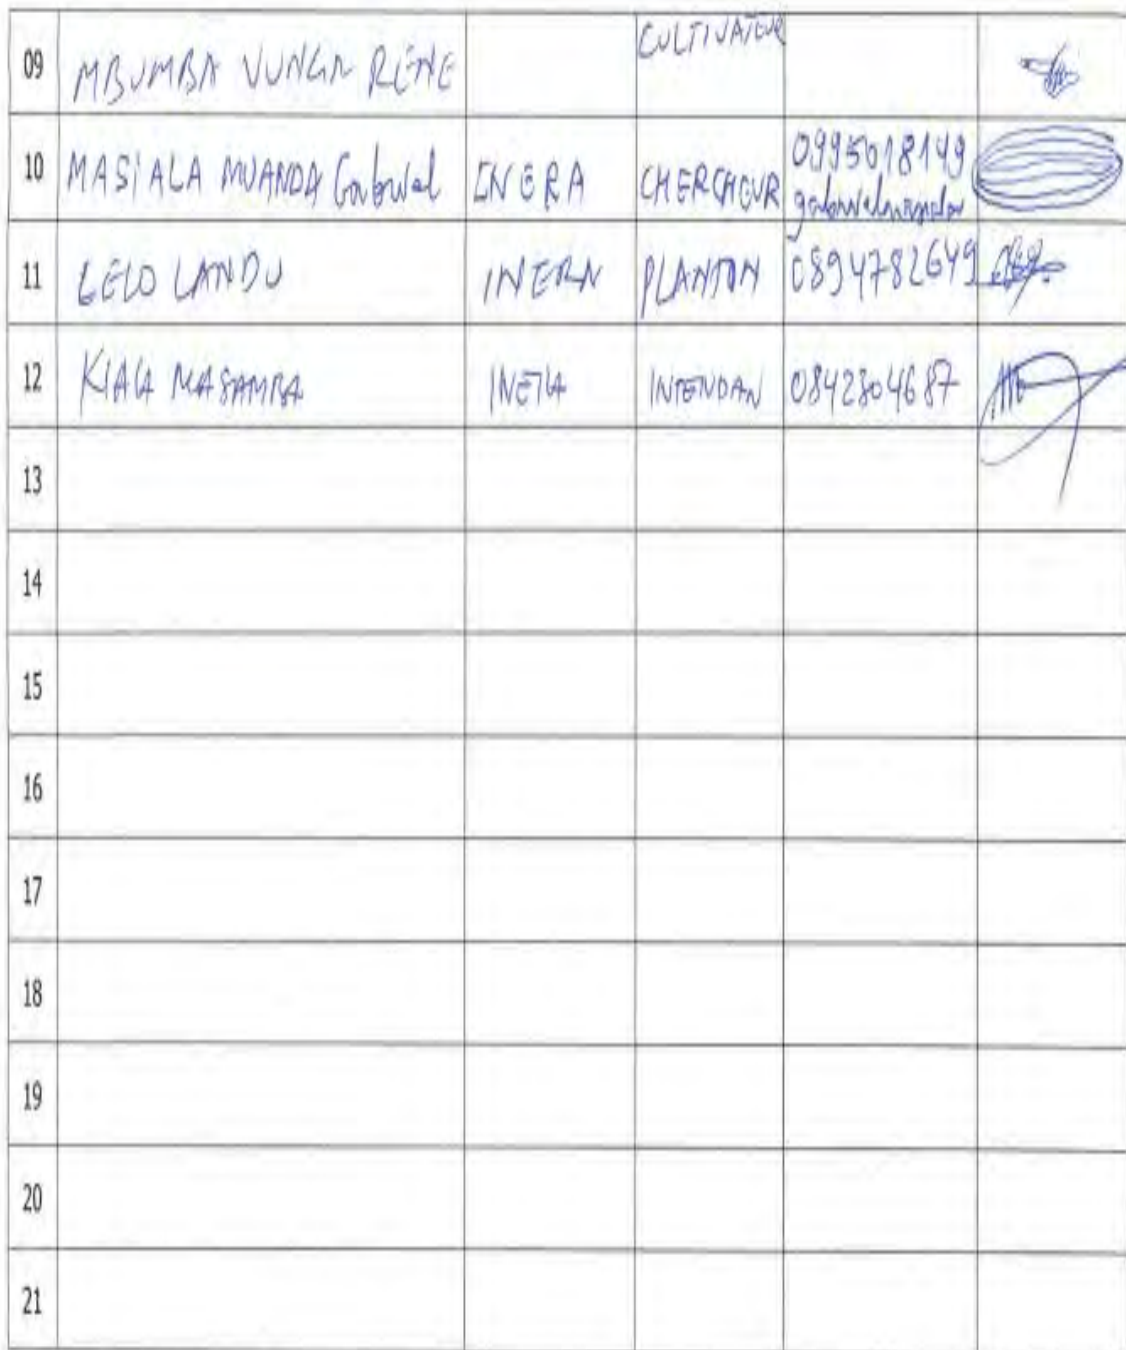 09 MBUMBA VUNGA RENE CULTIVATEUR
10 MASIALA MUANDA Gabriel INERA CHERCHEUR 0995018149
11 LELO LANDU INERA PLANTON 0894782649
12 KIALA MASAMBA INERA INTENDAN 0842804687
13
14
15
16
17
18
19
20
21